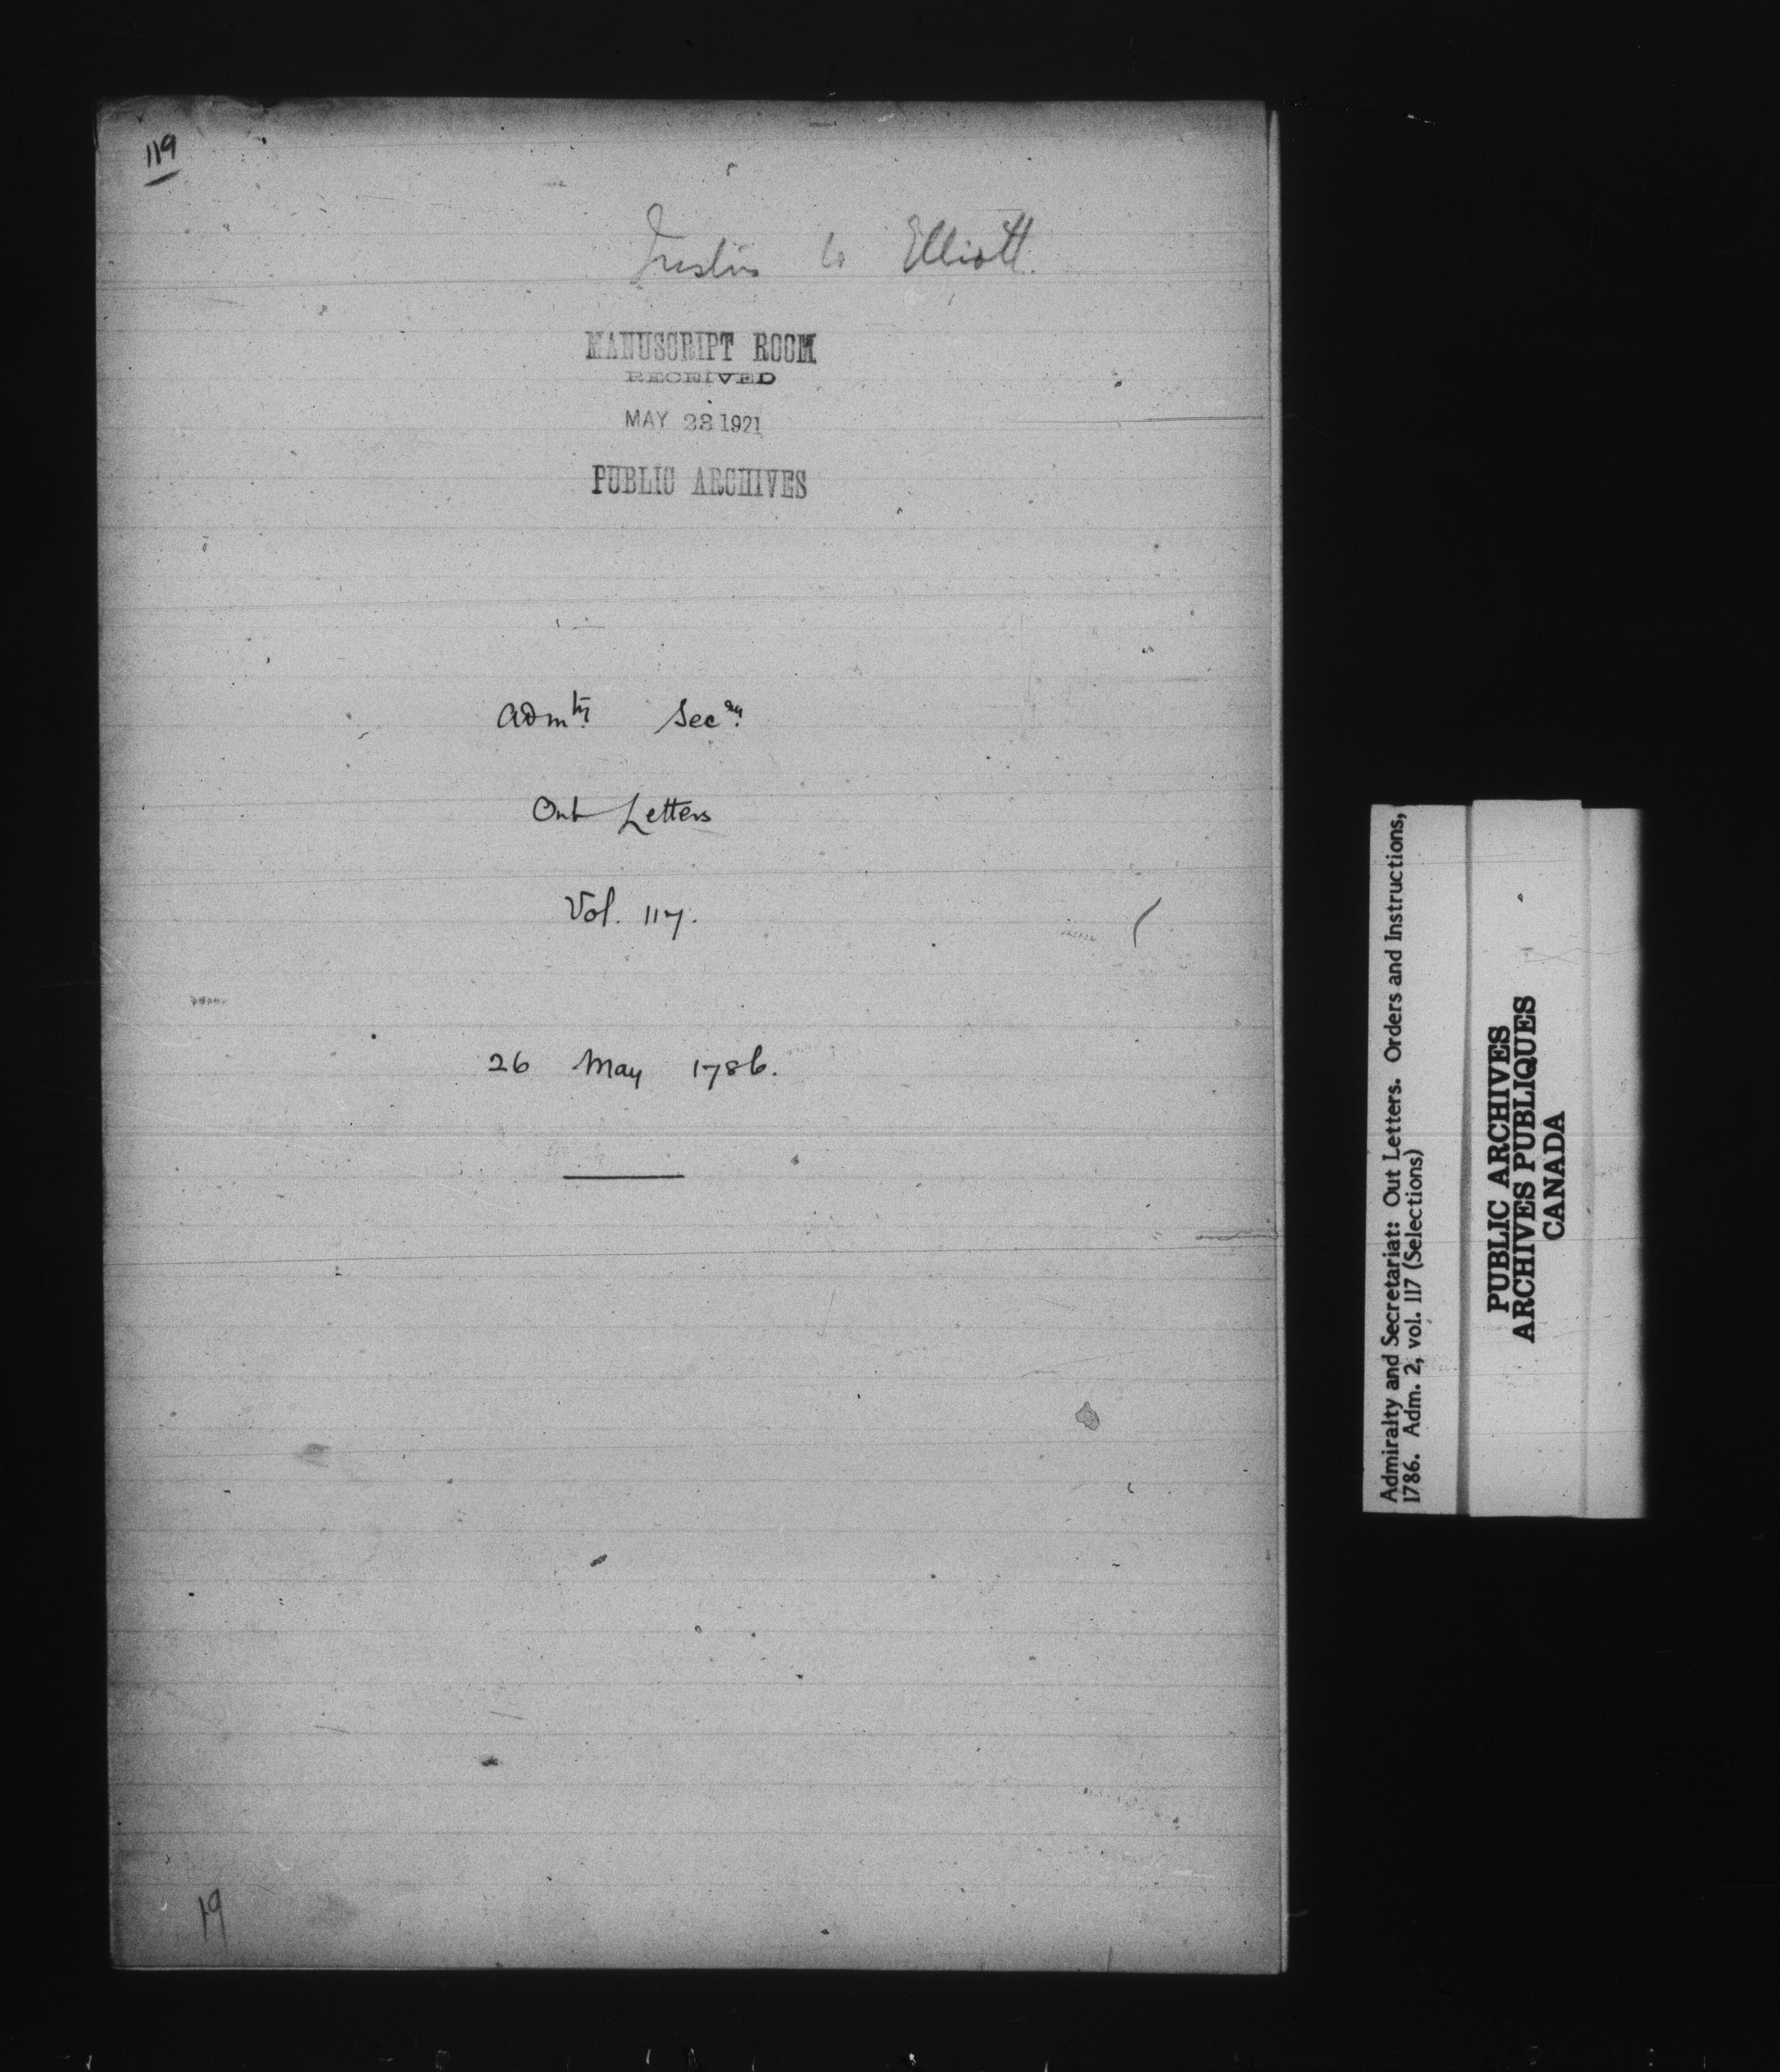 119
to Elliott.
MANUSCRIPT ROOM
RECEIVED
MAY 28 1921
PUBLIC ARCHIVES
Adm^ty. Sec^ry.
Out Letters
Vol. 117.
26 May 1786.
19
Admiralty and Secretariat: Out Letters. Orders and Instructions,
1786. Adm. 2, vol. 117 (Selections)
PUBLIC ARCHIVES
ARCHIVES PUBLIQUES
CANADA